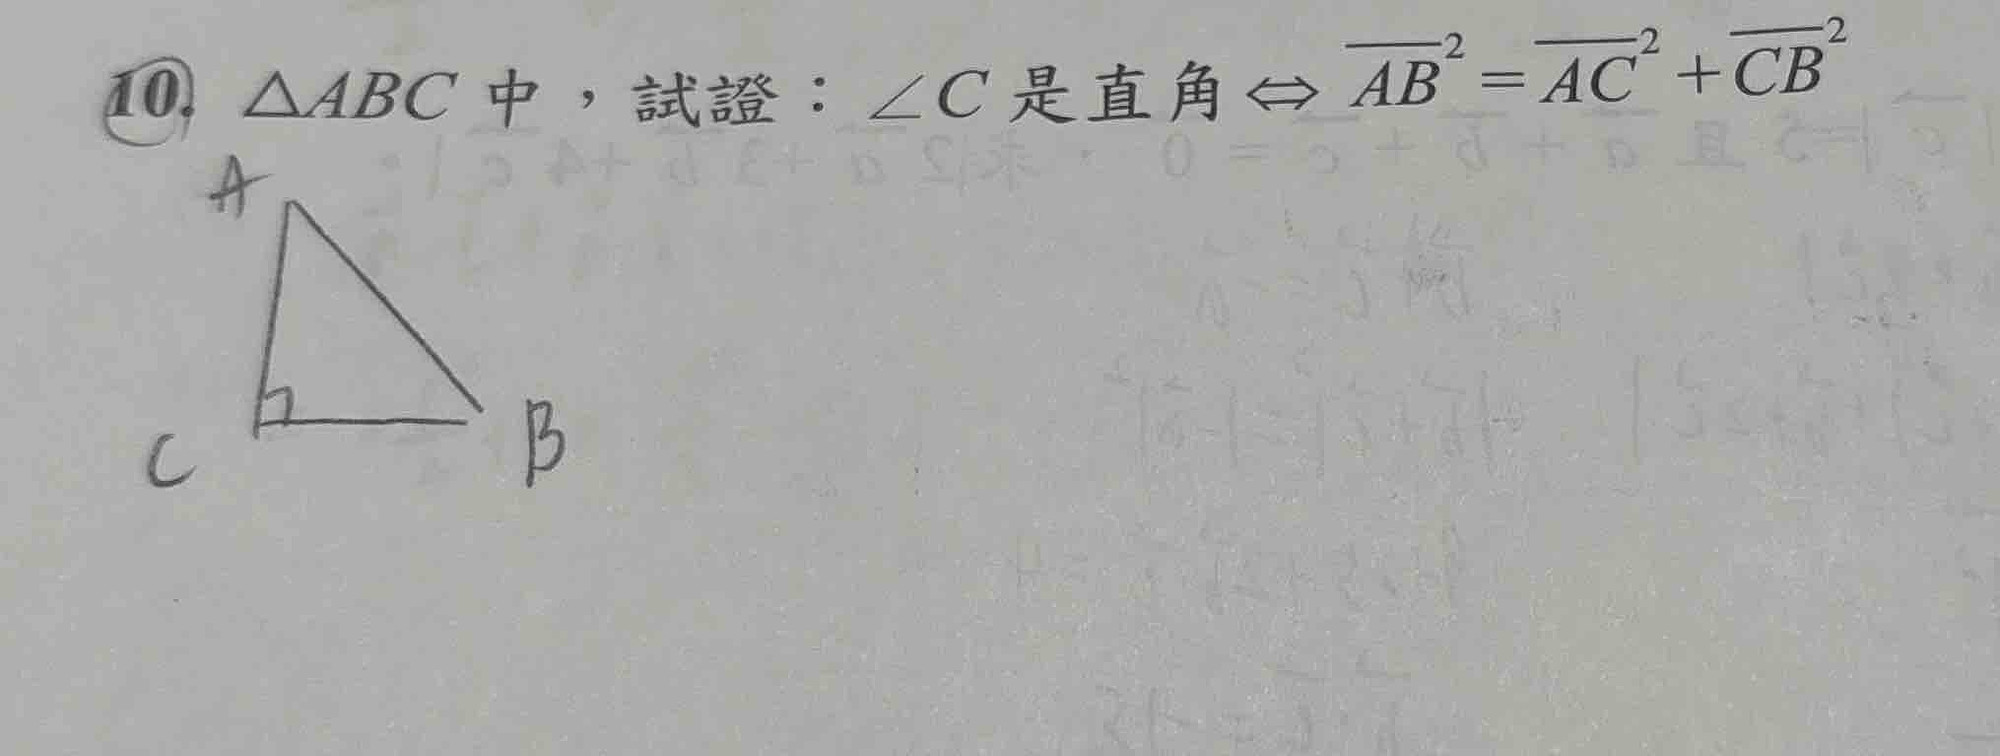 10. △ABC 中，試證：∠C 是直角 ⇔ \overline{AB}² = \overline{AC}² + \overline{CB}²
A
C B